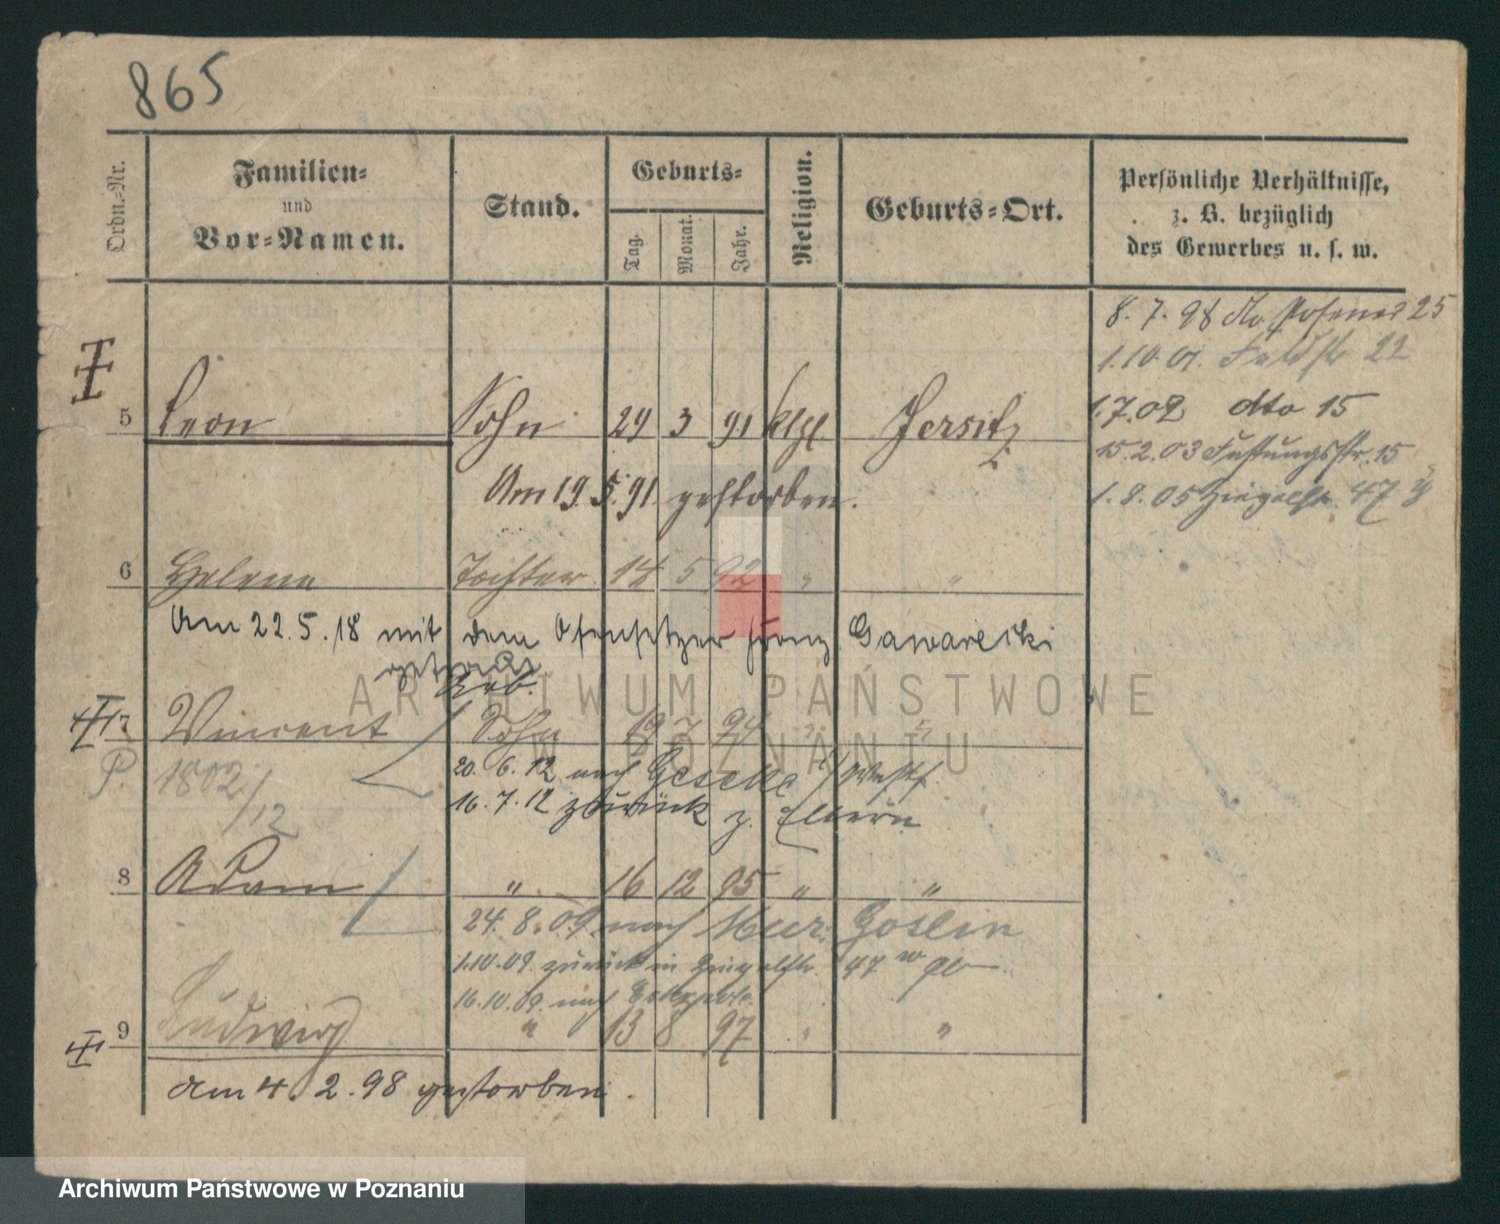 865
Ordn.-Nr.
Familien-
und
Vor-Namen.
Stand.
Geburts-
Tag.
Monat.
Jahr.
Religion.
Geburts-Ort.
Persönliche Verhältnisse,
z. B. bezüglich
des Gewerbes u. s. w.
8. 7. 98 25
1.10.01. Feldstr 22
1.7.02 dto 15
15.2.03 15
1.8.05 Ziegelstr. 47
5 Leon Sohn 29 3 91 kth. Jersitz
Am 19.5.91. gestorben.
6 Helene Tochter 14 5 92 " "
Am 22.5.18 mit dem Ofensetzer Franz Gawarecki
getraut
Arb.
7 Vincent Sohn 19 7 94 " "
P. 1802/12
20. 6. 12 nach Geseke i/Westf
16.7.12 zurück z. Eltern
8 Adam " 16 12 95 " "
24. 8. 09. nach Mur. Goslin
1.10.09. zurück in Ziegelstr. 47
16.10.09. nach
9 Ludwig " 13 8 97 " "
am 4. 2. 98 gestorben.
ARCHIWUM PAŃSTWOWE
W POZNANIU
Archiwum Państwowe w Poznaniu